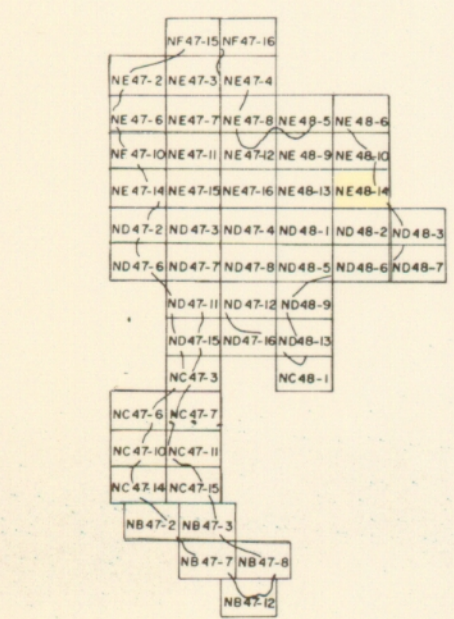 NF47-15 NF47-16
NE47-2 NE47-3 NE47-4
NE47-6 NE47-7 NE47-8 NE48-5 NE48-6
NF47-10 NE47-11 NE47-12 NE48-9 NE48-10
NE47-14 NE47-15 NE47-16 NE48-13 NE48-14
ND47-2 ND47-3 ND47-4 ND48-1 ND48-2 ND48-3
ND47-6 ND47-7 ND47-8 ND48-5 ND48-6 ND48-7
ND47-11 ND47-12 ND48-9
ND47-15 ND47-16 ND48-13
NC47-3 NC48-1
NC47-6 NC47-7
NC47-10 NC47-11
NC47-14 NC47-15
NB47-2 NB47-3
NB47-7 NB47-8
NB47-12